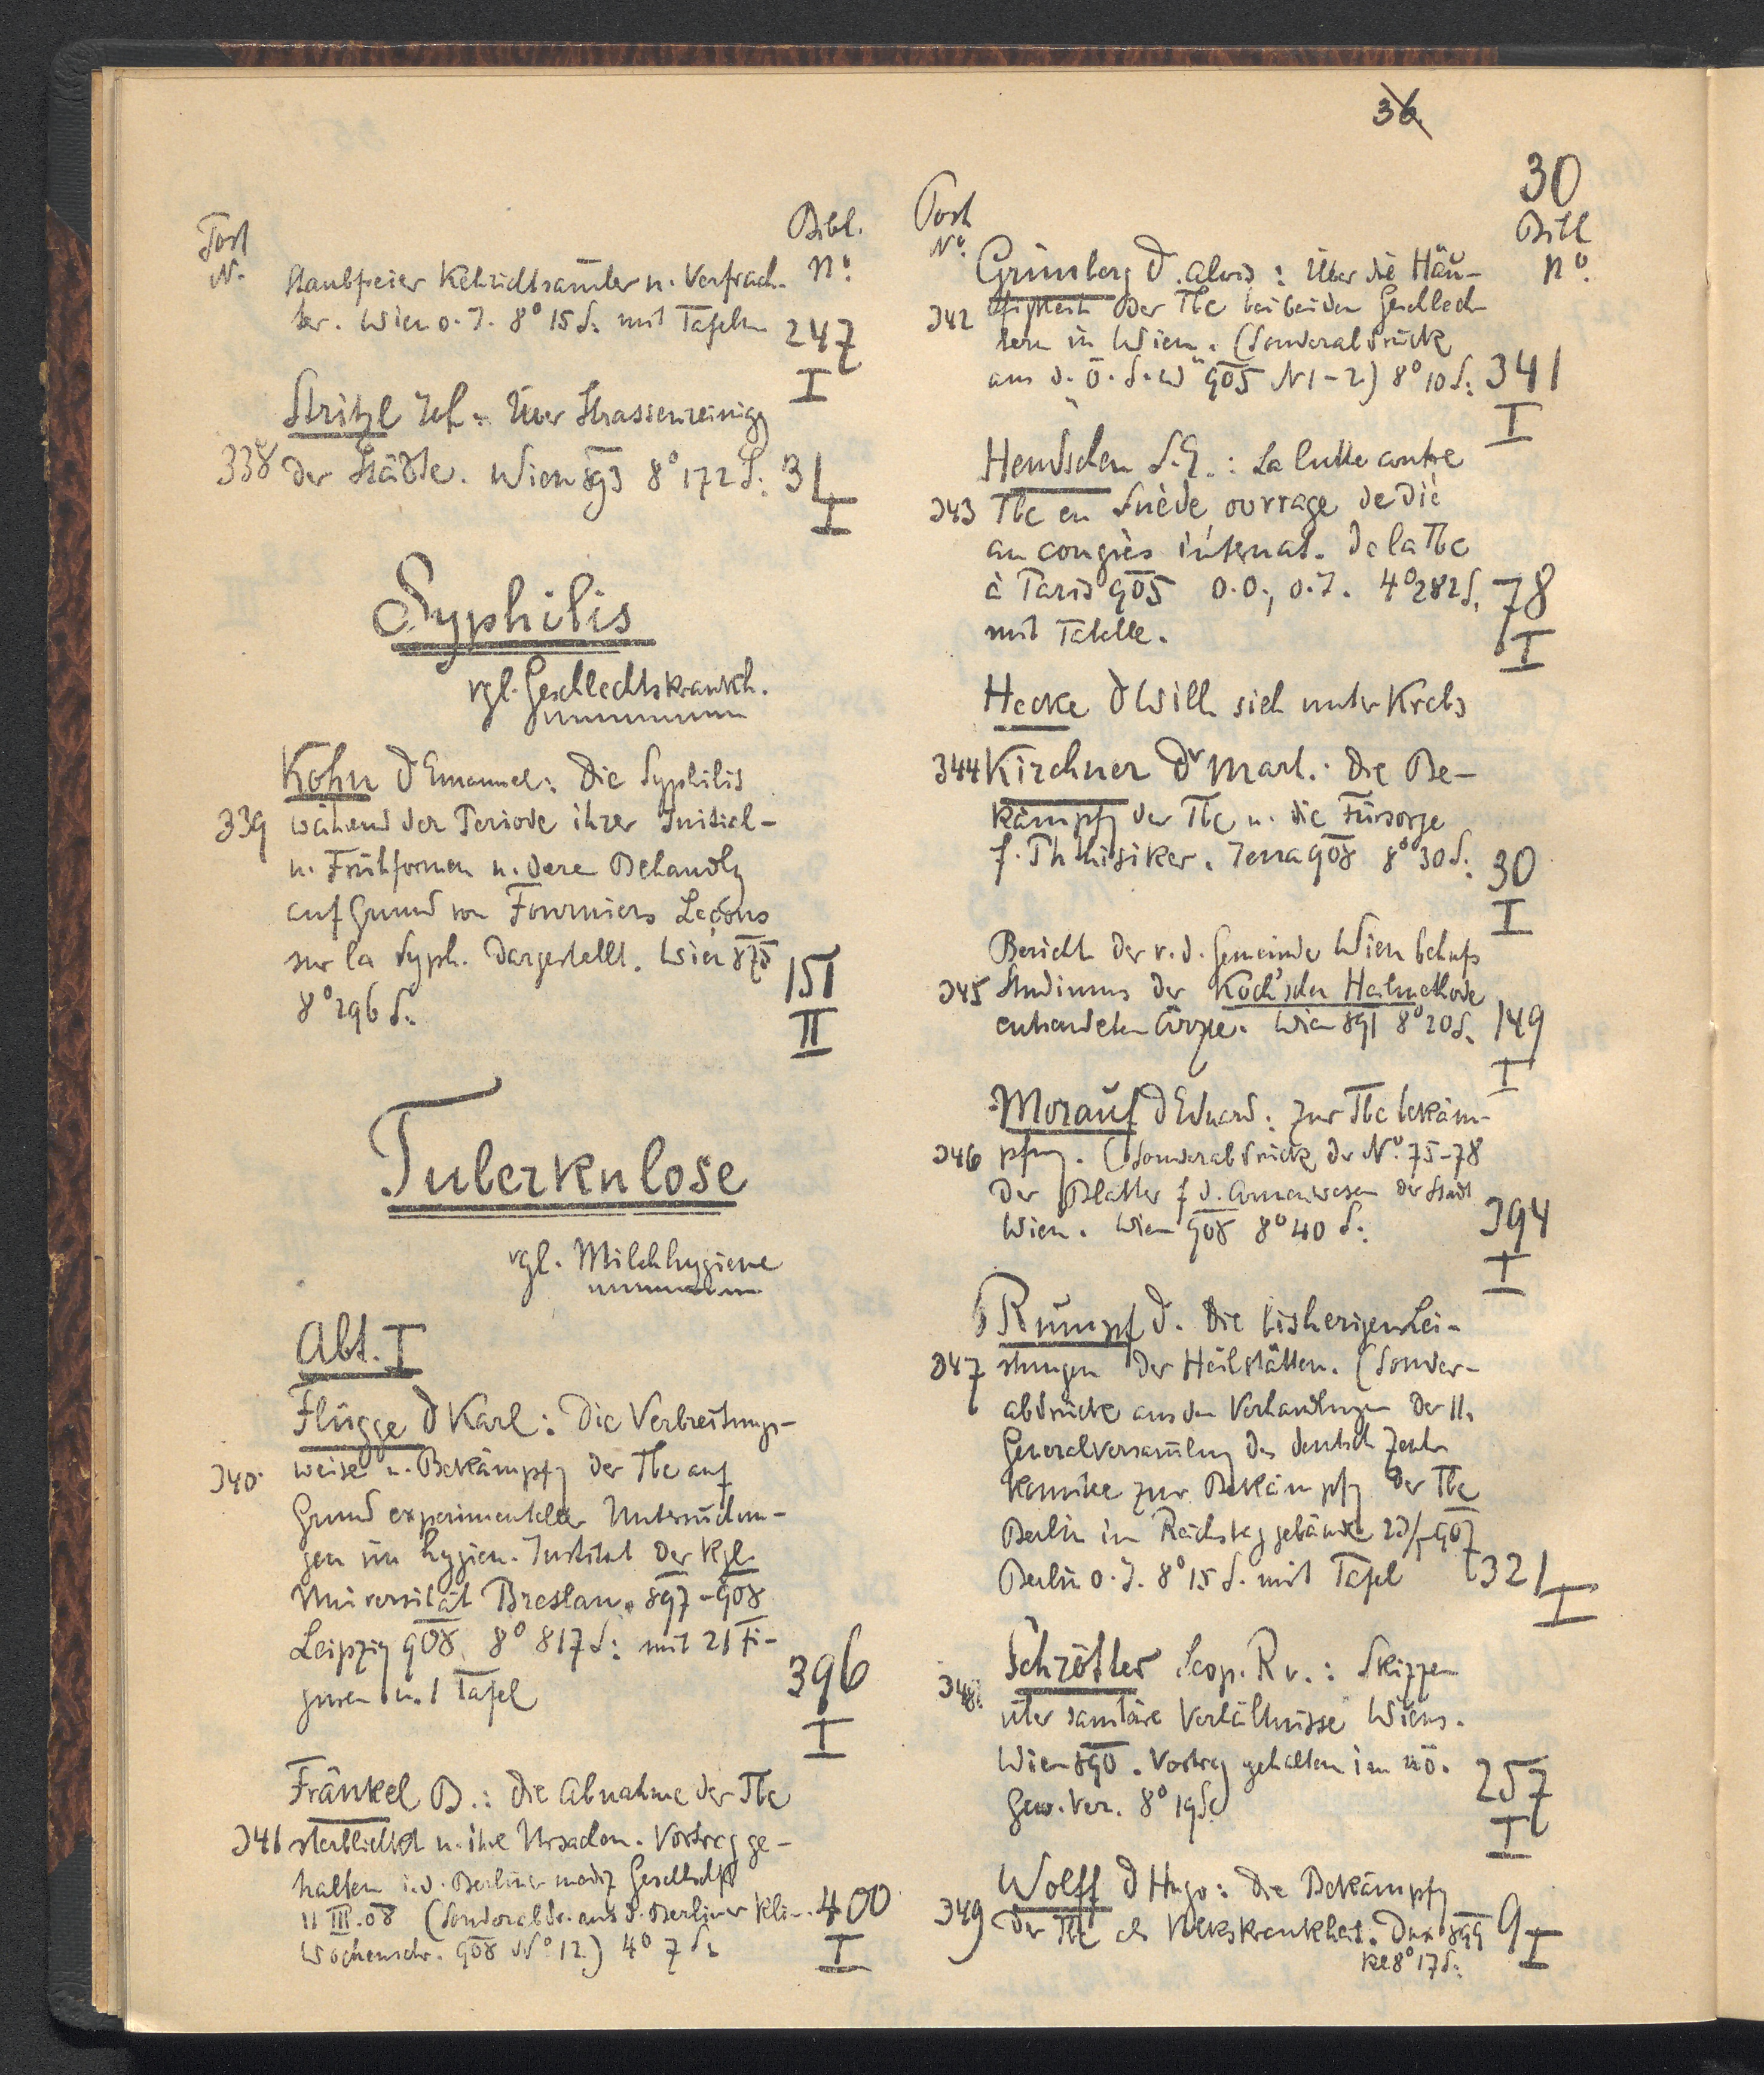 36
30
Post
No.
Bibl.
No.
Staubfreier Kehrichtsam̅ler u. Verfrach-
ter. Wien o. J. 8° 15 S. mit Tafeln
247
I
Stritzl Jos.: Über Strassenreinigg
338 der Städte. Wien 893 8° 172 S.
31
I
Syphilis
vgl. Geschlechtskrankh.
Kohn D Emanuel: Die Syphilis
339 während der Periode ihrer Initial-
u. Frühformen u. deren Behandlg
auf Grund von Fourniers Leçons
sur la Syph. dargestellt. Wien 875
8° 296 S.
151
II
Tuberkulose
vgl. Milchhygiene
Abt. I
Flügge D Karl: Die Verbreitungs-
340. weise u. Bekämpfg der Tbc auf
Grund experimenteller Untersuchun-
gen im hygien. Institut der kgl.
Universität Breslau. 897-908
Leipzig 908. 8° 817 S: mit 21 Fi-
guren u. 1 Tafel
396
I
Fränkel B.: Die Abnahme der Tbc
341 sterblichkt u. ihre Ursachen. Vortrag ge-
halten i. d. Berliner mediz Gesellschft
11 III. 08 (Sonderabdr. aus d. Berliner Klin.
Wochenschr. 908 No 12.) 4° 7 S.
400
I
Post
No.
Bibl
No.
Grünberg D. Alois: Über die Häu-
342 figkeit der Tbc bei beiden Geschlech
tern in Wien. (Sonderabdrück
aus d. "Ö. S. W" 905 N 1-2) 8° 10 S.
341
I
Henschen S. E.: La lutte contre
343 Tbc en Suède, ouvrage dedié
au congrès internat. de la Tbc
à Paris 905 o. O., o. J. 4° 282 S.
mit Tabelle.
78
I
Hecke D Wilh sieh unter Krebs
344 Kirchner Dr Mart.: Die Be-
kämpfg der Tbc u. die Fürsorge
f. Phthisiker. Jena 908 8° 30 S.
30
I
Bericht der v. d. Gemeinde Wien behufs
345 Studiums der Koch'schen Heilmethode
entsendeten Ärzte. Wien 891 8° 20 S.
149
I
Morauf D Eduard: Zur Tbc bekäm-
346 pfung. (Sonderabdrück der No. 75-78
der Blätter f d. Armenwesen der Stadt
Wien. Wien 908 8° 40 S.
394
I
Rumpf D. Die bisherigen Lei-
347 stungen der Heilstätten. (Sonder-
abdrück aus den Verhandlungen der 11.
Generalversam̅lung des deutsch Zentr
Komitee zur Bekämpfg der Tbc
Berlin im Reichstaggebäude 23/5 907
Berlin o. J. 8° 15 S. mit Tafel
321
I
Schrötter Leop. R v.: Skizzen
348. über sanitäre Verhältnisse Wiens.
Wien 890. Vortrag gehalten im nö.
Gew. Ver. 8° 19 S.
257
I
Wolff D Hugo: Die Bekämpfg
349 der Tbc als Volkskrankheit. Dux 899
kl 8° 17 S.
9
I